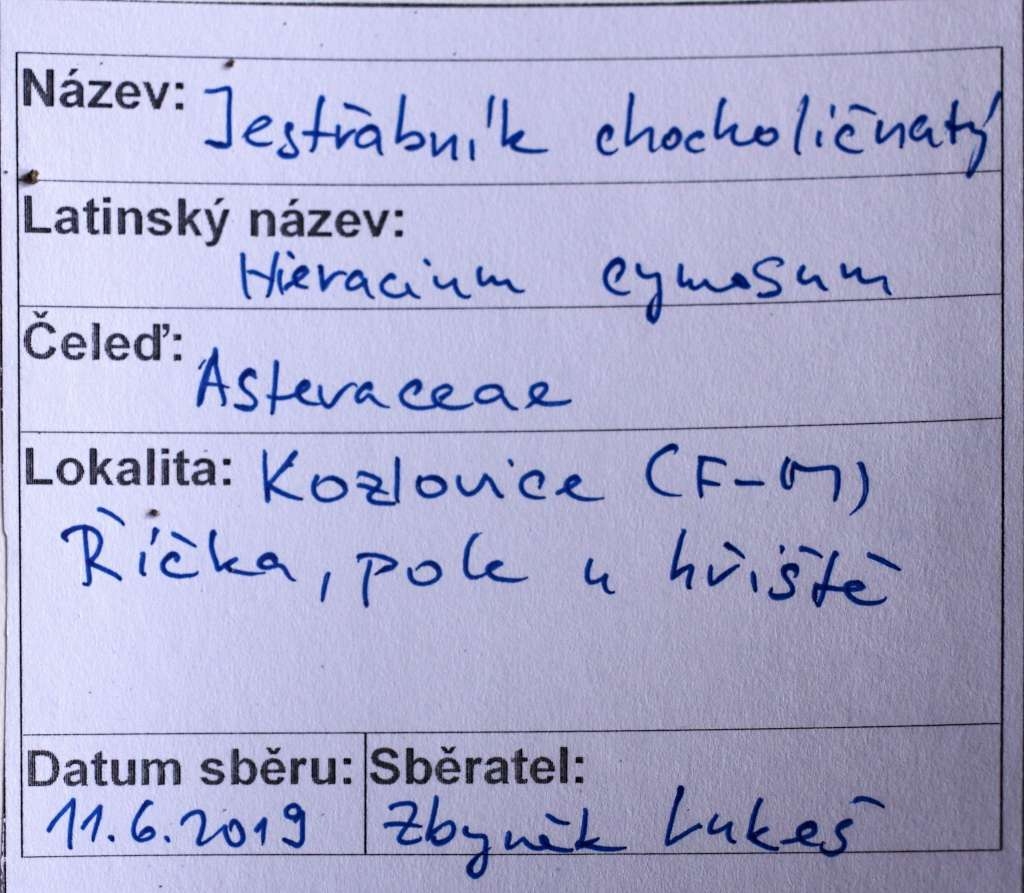 Název: Jestřábník chocholičnatý
Latinský název:
Hieracium cymosum
Čeleď: Asteraceae
Lokalita: Kozlovice (F-M)
Říčka, pole u hřiště
Datum sběru: Sběratel:
11.6.2019 Zbyněk Lukeš